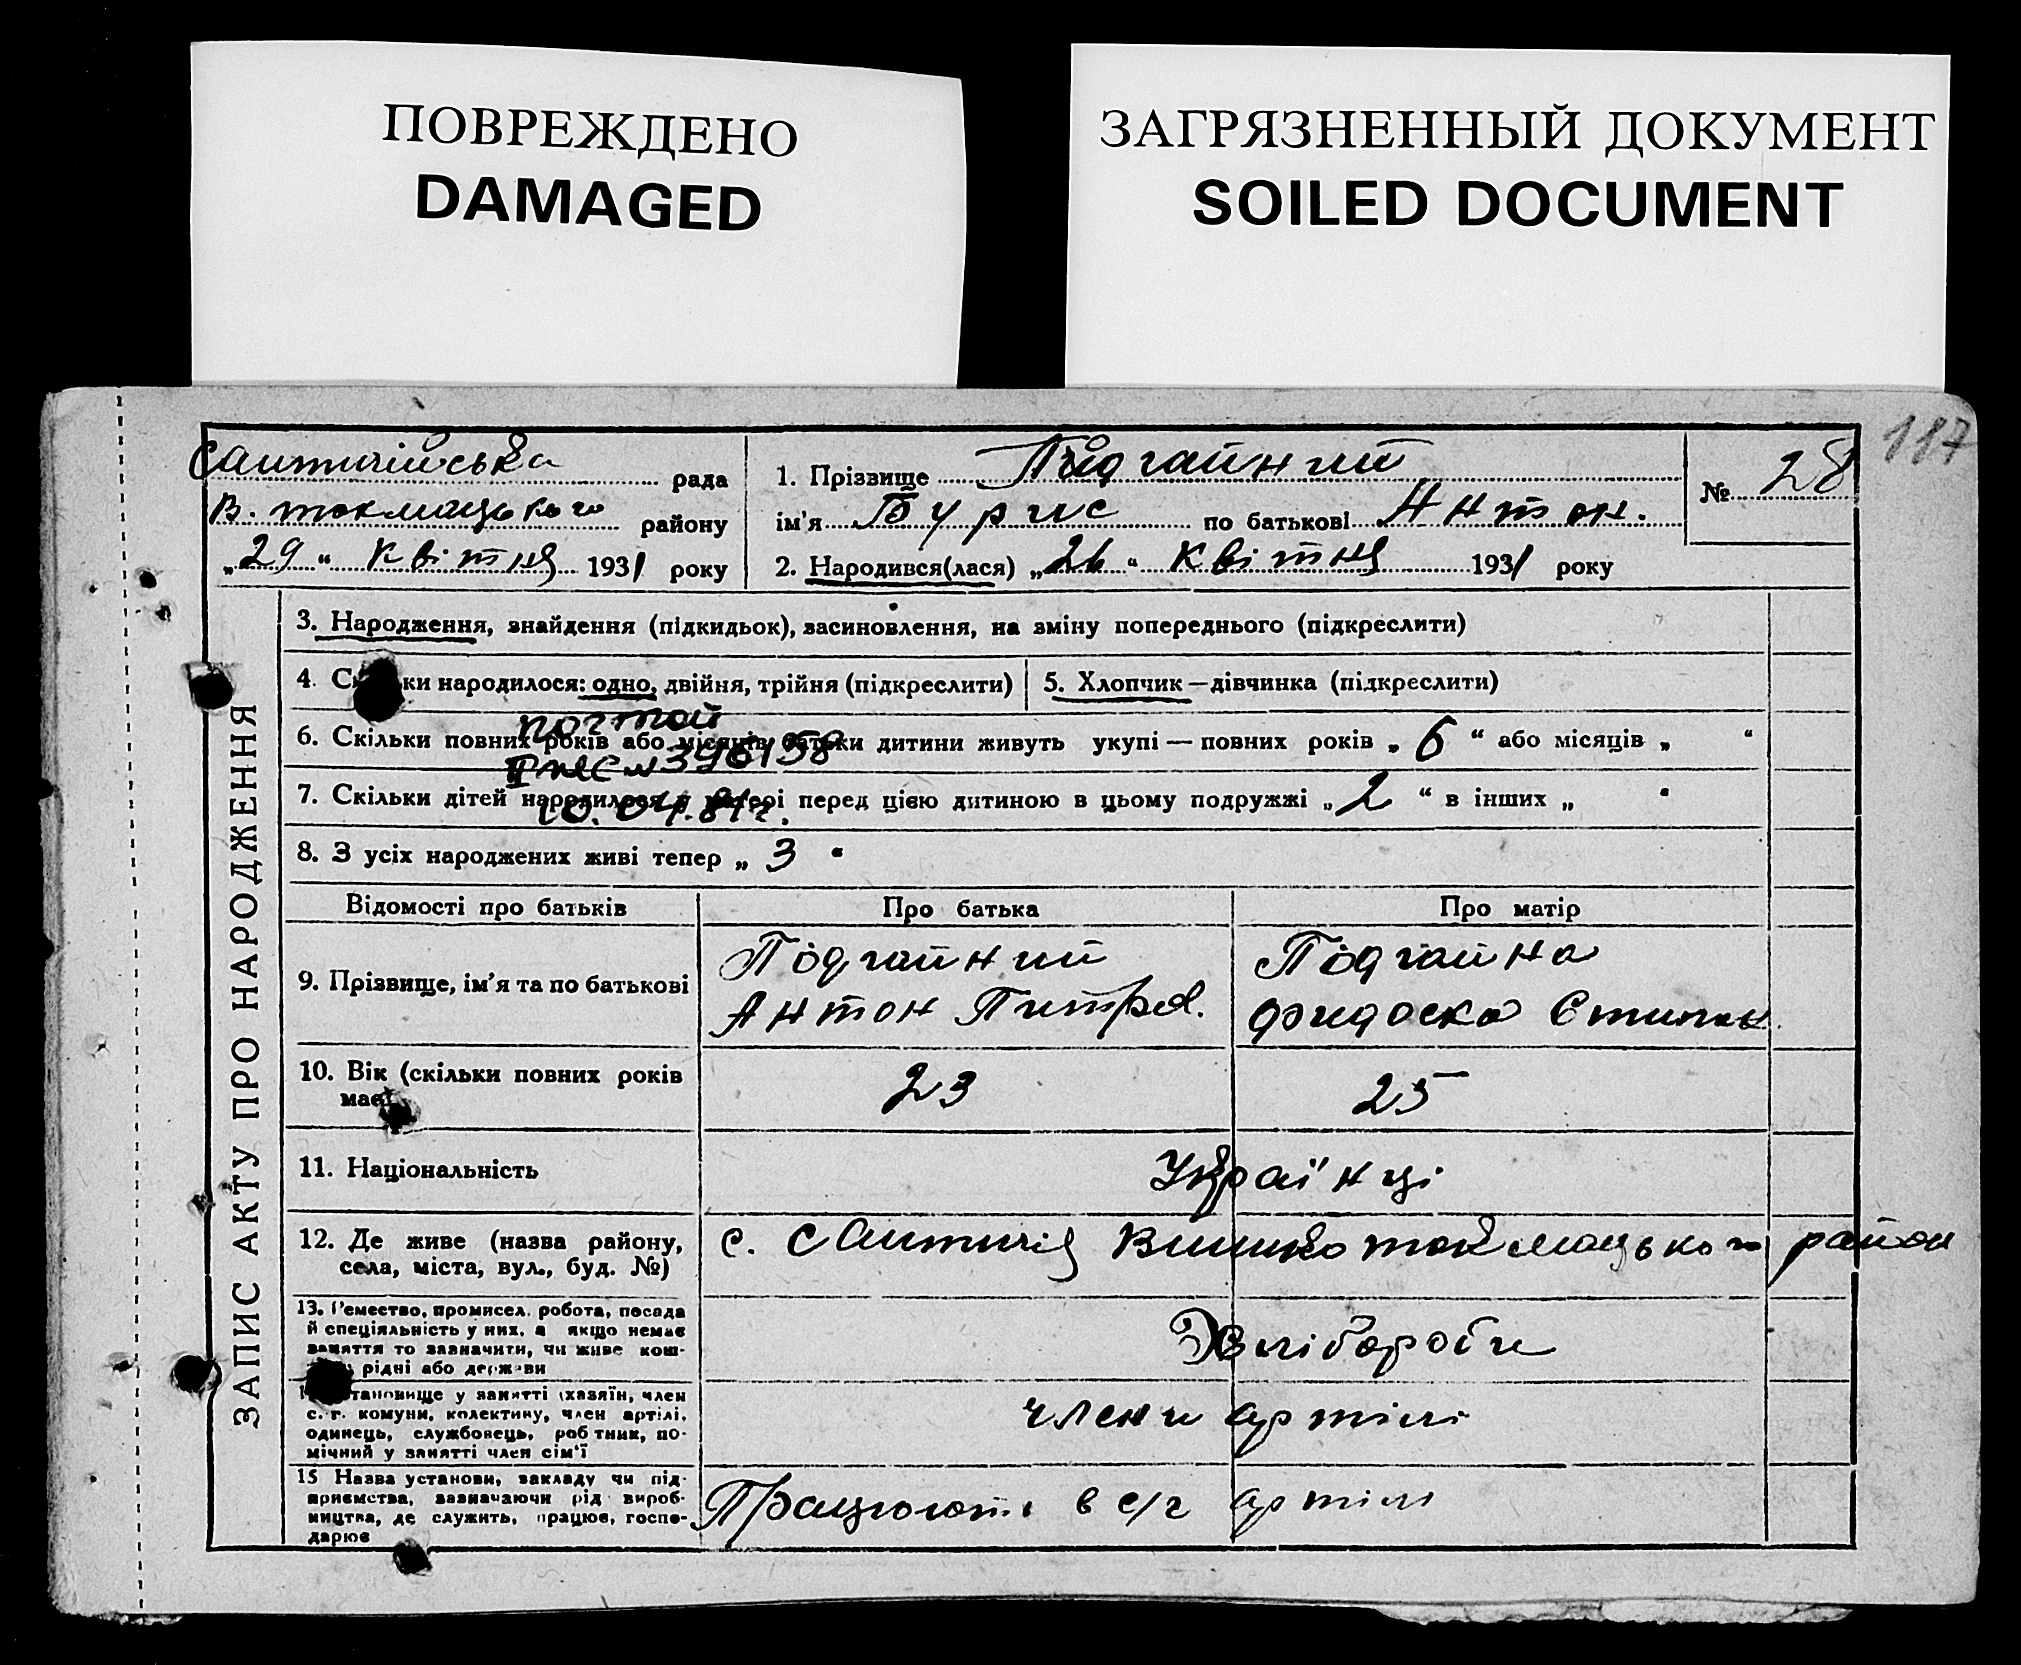 ПОВРЕЖДЕНО
DAMAGED
ЗАГРЯЗНЕННЫЙ ДОКУМЕНТ
SOILED DOCUMENT
187
рада
В. токмацького району
„29“ квітня 1931 року
1. Прізвище Підгайний
ім’я Бурис по батькові Антон.
2. Народився(лася) „26“ квітня 1931 року
№ 28
ЗАПИС АКТУ ПРО НАРОДЖЕННЯ
3. Народження, знайдення (підкидьок), засиновлення, на зміну попереднього (підкреслити)
4. ки народилося: одно, двійня, трійня (підкреслити)
5. Хлопчик — дівчинка (підкреслити)
почтой
6. Скільки повних років або місяців батьки дитини живуть укупі — повних років „6“ або місяців „ “
396158
7. Скільки дітей народилося у матері перед цією дитиною в цьому подружжі „2“ в інших „ “
10.04.81г.
8. З усіх народжених живі тепер „3“
Відомості про батьків
Про батька
Про матір
9. Прізвище, ім’я та по батькові
Підгайний
Антон Питров.
Підгайна
Фидоска Степан.
10. Вік (скільки повних років
має)
23
25
11. Національність
Українці
12. Де живе (назва району,
села, міста, вул., буд. №)
с. токмацького район
13. Ремество, промисел, робота, посада
й спеціяльність у них, а якщо немає
заняття то зазначити, чи живе кош-
рідні або держави
Хлібороби
тановище у занятті (хазяїн, член
с.-г. комуни, колективу, член артілі,
одинець, службовець, робтник, по-
мічний у занятті член сім’ї
члени артілі
15 Назва установи, закладу чи під-
приємства, зазначаючи рід вироб-
ництва, де служить, працює, госпо-
дарює
Працюють в с/г артілі